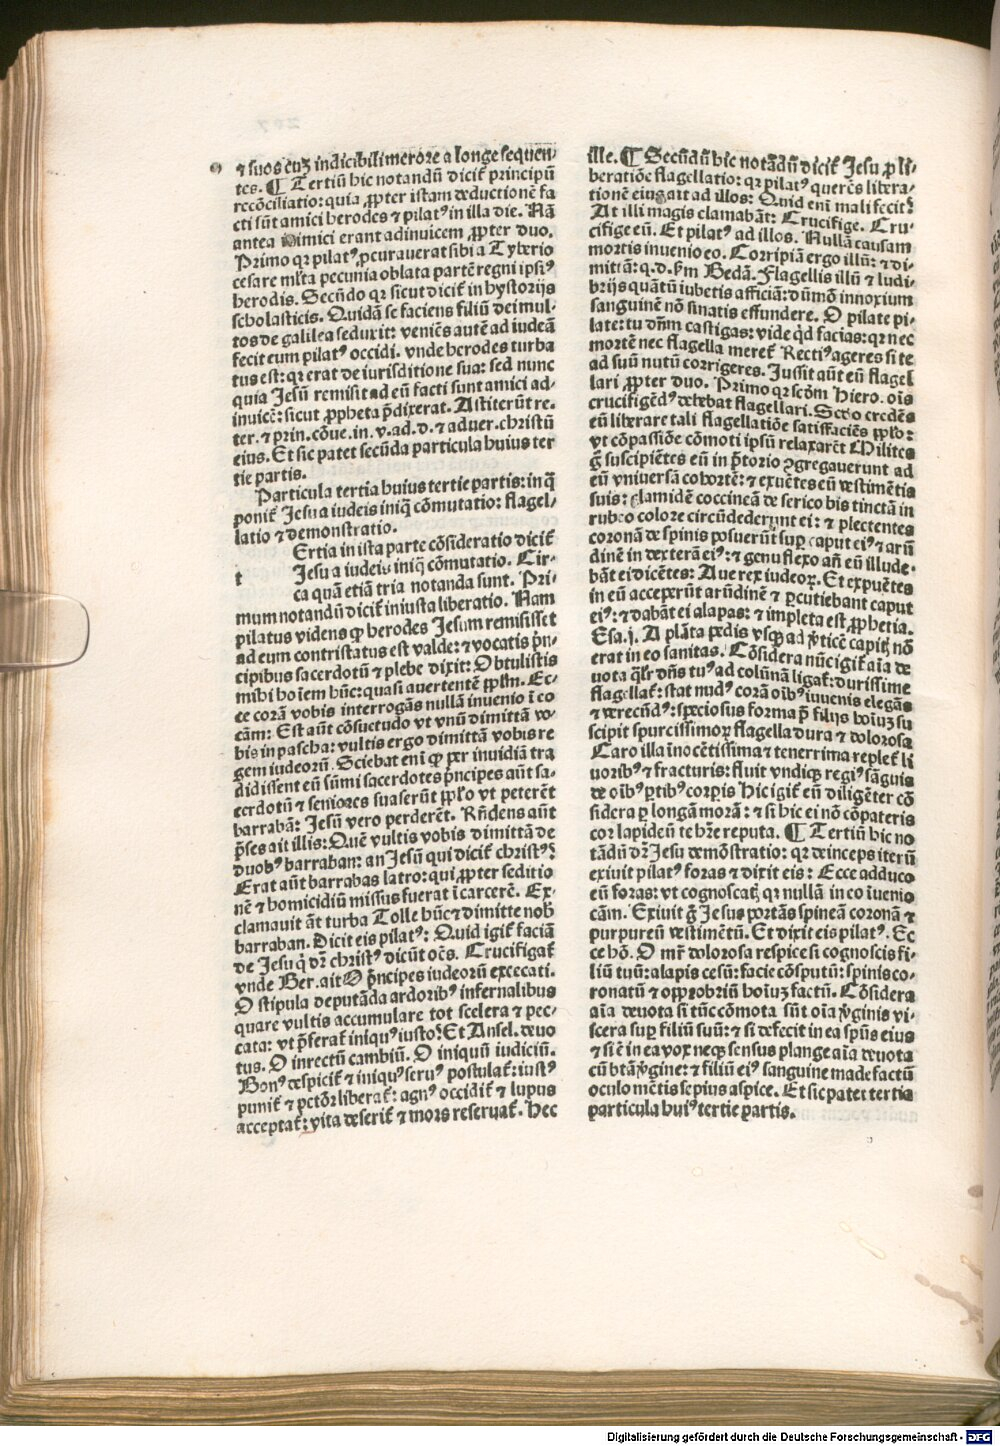 ⁊ suos cuꝫ indicibili merore a longe sequen⸗
tes. ¶ Tertiū hic notandū dicit᷑ principū
recōciliatio: quia ꝓpter istam deductionem fa
cti sūt amici herodes ⁊ pilatꝰ in illa die. Nā
antea inimici erant adinuicem ꝓpter duo.
Primo qꝛ pilatꝰ ꝓcurauerat sibi a Tyberio
cesare ml̓ta pecunia oblata partē regni ipsiꝰ
herodis. Secūdo qꝛ sicut dicit᷑ in hystorijs
scholasticis. Quidā se faciens filiū dei mul⸗
tos de galilea seduxit: veniēs autē ad iudeā
fecit eum pilatꝰ occidi. vnde herodes turba
tus est: qꝛ erat de iurisditione sua: sed nunc
quia Jesū remisit ad eū facti sunt amici ad⸗
inuicē: sicut ꝓpheta p̄dixerat. Astiterūt re.
ter. ⁊ prin. cōue. in. v. ad. d. ⁊ aduer. christū
eius. Et sic patet secūda particula huius ter
tie partis.
Particula tertia huius tertie partis: in q̄
ponit᷑ Jesu a iudeis iniq̄ cōmutatio: flagel⸗
latio ⁊ demonstratio.
t Ertia in ista parte cōsideratio dicit᷑
Jesu a iudeis iniq̄ cōmutatio. Cir⸗
ca quā etiā tria notanda sunt. Pri⸗
mum notandū dicit᷑ iniusta liberatio. Nam
pilatus videns ꝙ herodes Jesum remisisset
ad eum contristatus est valde: ⁊ vocatis p̄n⸗
cipibus sacerdotū ⁊ plebe dixit: Obtulistis
mihi hoīem hūc: quasi auertentē ppl̓m. Ec⸗
ce corā vobis interrogās nullā inuenio ī eo
cām: Est aūt cōsuetudo vt vnū dimittā vo⸗
bis in pascha: vultis ergo dimittā vobis re
gem iudeorū. Sciebat enī ꝙ per inuidiā tra
didissent eū sūmi sacerdotes p̄ncipes aūt sa⸗
cerdotū ⁊ seniores suaserūt ppl̓o vt peterēt
barrabā: Jesū vero perderēt. Rn̄dens aūt
p̄ses ait illis: Quē vultis vobis dimittā de
duobꝰ barraban: an Jesū qui dicit᷑ christꝰ?
Erat aūt barrabas latro: qui ꝓpter seditio
nē ⁊ homicidiū missus fuerat ī carcerē. Ex⸗
clamauit āt turba Tolle hūc ⁊ dimitte nob̓
barraban. Dicit eis pilatꝰ: Quid igit᷑ faciā
de Jesu q̇ dr̄ christꝰ dicūt oēs. Crucifigat᷑
vnde Ber. ait O p̄ncipes iudeorū excecati.
O stipula deputāda ardoribꝰ infernalibus
quare vultis accumulare tot scelera ⁊ pec⸗
cata: vt p̄ferat᷑ iniquꝰ iusto? Et Ansel. deuo
tus. O inrectū cambiū. O iniquū iudiciū.
Bonꝰ despicit᷑ ⁊ iniquꝰ seruꝰ postulat᷑: iustꝰ
punit᷑ ⁊ pctōr liberat᷑: agnꝰ occidit᷑ ⁊ lupus
acceptat᷑: vita deserit᷑ ⁊ mors reseruat᷑. Hec
ille. ¶ Secūdū hic notādū dicit᷑ Jesu ꝓ li⸗
beratiōe flagellatio: qꝛ pilatꝰ querēs libera⸗
tionē eius ait ad illos: Quid enī mali fecit?
At illi magis clamabāt: Crucifige. Cru⸗
cifige eū. Et pilatꝰ ad illos. Nullā causam
mortis inuenio eo. Corripiā ergo illū: ⁊ di⸗
mittā: q. d. ẜm Bedā. Flagellis illū ⁊ ludi⸗
brijs quātū iubetis afficiā: dūmō innoxium
sanguinē nō sinatis effundere. O pilate pi⸗
late: tu dn̄m castigas: vide qd̓ facias: qꝛ nec
mortē nec flagella meret᷑ Rectiꝰ ageres si te
ad suū nutū corrigeres. Jussit aūt eū flagel
lari ꝓpter duo. Primo qꝛ scd̓m Hiero. oīs
crucifigēdꝰ debebat flagellari. Scd̓o credēs
eū liberare tali flagellatiōe satisfaciēs ppl̓o:
vt cōpassiōe cōmoti ipsū relaxarēt Milites
g̊ suscipiētes eū in p̄torio ꝯgregauerunt ad
eū vniuersā cohortē: ⁊ exuētes eū vestimētis
suis: clamidē coccineā de serico bis tinctā in
rubeo colore circūdederunt ei: ⁊ plectentes
coronā de spinis posuerūt suꝑ caput eiꝰ ⁊ arū
dinē in dexterā eiꝰ: ⁊ genu flexo añ eū illude⸗
bāt ei dicētes: Aue rex iudeoꝝ. Et expuētes
in eū acceperūt arūdinē ⁊ ꝑcutiebant caput
eiꝰ: ⁊ dabāt ei alapas: ⁊ impleta est ꝓphetia.
Esa. j. A plāta pedis vsqꝫ ad v̓ticē capitꝭ nō
erat in eo sanitas. Cōsidera nūc igit᷑ aīa de
uota qlr̓ dn̄s tuꝰ ad colūnā ligat᷑: durissime
flagellat᷑: stat nudꝰ corā oībꝰ iuuenis elegās
⁊ verecūdꝰ: speciosus forma p̄ filijs hoīuꝫ su
scipit spurcissimoꝝ flagella dura ⁊ dolorosa
Caro illa īnocētissima ⁊ tenerrima replet᷑ li
uoribꝰ ⁊ fracturis: fluit vndiqꝫ regiꝰ sāguis
de oībꝰ ꝑtibꝰ corpis Hic igit᷑ eū diligēter cō
sidera ꝑ longā morā: ⁊ si hic ei nō cōpateris
cor lapideū te hr̄e reputa. ¶ Tertiū hic no
tādū dr̄ Jesu demōstratio: qꝛ deinceps iterū
exiuit pilatꝰ foras ⁊ dixit eis: Ecce adduco
eū foras: vt cognoscatꝭ qꝛ nullā in eo īuenio
cām. Exiuit g̊ Jesus portās spineā coronā ⁊
purpureū vestimētū. Et dixit eis pilatꝰ. Ec
ce hō. O mr̄ dolorosa respice si cognoscis fi⸗
liū tuū: alapis cesū: facie cōsputū: spinis co⸗
ronatū ⁊ opprobriū hoīuꝫ factū. Cōsidera
aīa deuota si tūc cōmota sūt oīa v̓ginis vi⸗
scera suꝑ filiū suū: ⁊ si defecit in ea spūs eius
⁊ si ē in ea vox neqꝫ sensus plange aīa deuota
cū btā v̓gine: ⁊ filiū eiꝰ sanguine madefactū
oculo mētis sepius aspice. Et sic patet tertia
particula huiꝰ tertie partis.
Digitalisierung gefördert durch die Deutsche Forschungsgemeinschaft - DFG